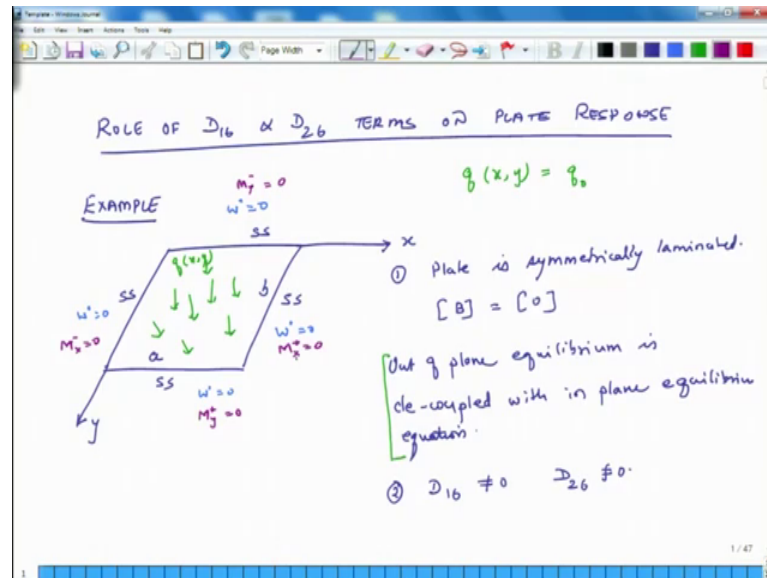 Template - Windows Journal
File Edit View Insert Actions Tools Help
Page Width
B I
ROLE OF D16 & D26 TERMS ON PLATE RESPONSE
EXAMPLE
My⁻ = 0
w° = 0
SS
q (x, y) = q₀
x
q(x,y)
SS
w° = 0
Mx⁻ = 0
b
SS
w° = 0
Mx⁺ = 0
a
SS
w° = 0
My⁺ = 0
y
① Plate is symmetrically laminated.
[B] = [0]
Out of plane equilibrium is
de-coupled with in plane equilibrium
equation.
② D16 ≠ 0 D26 ≠ 0.
1 / 47
1